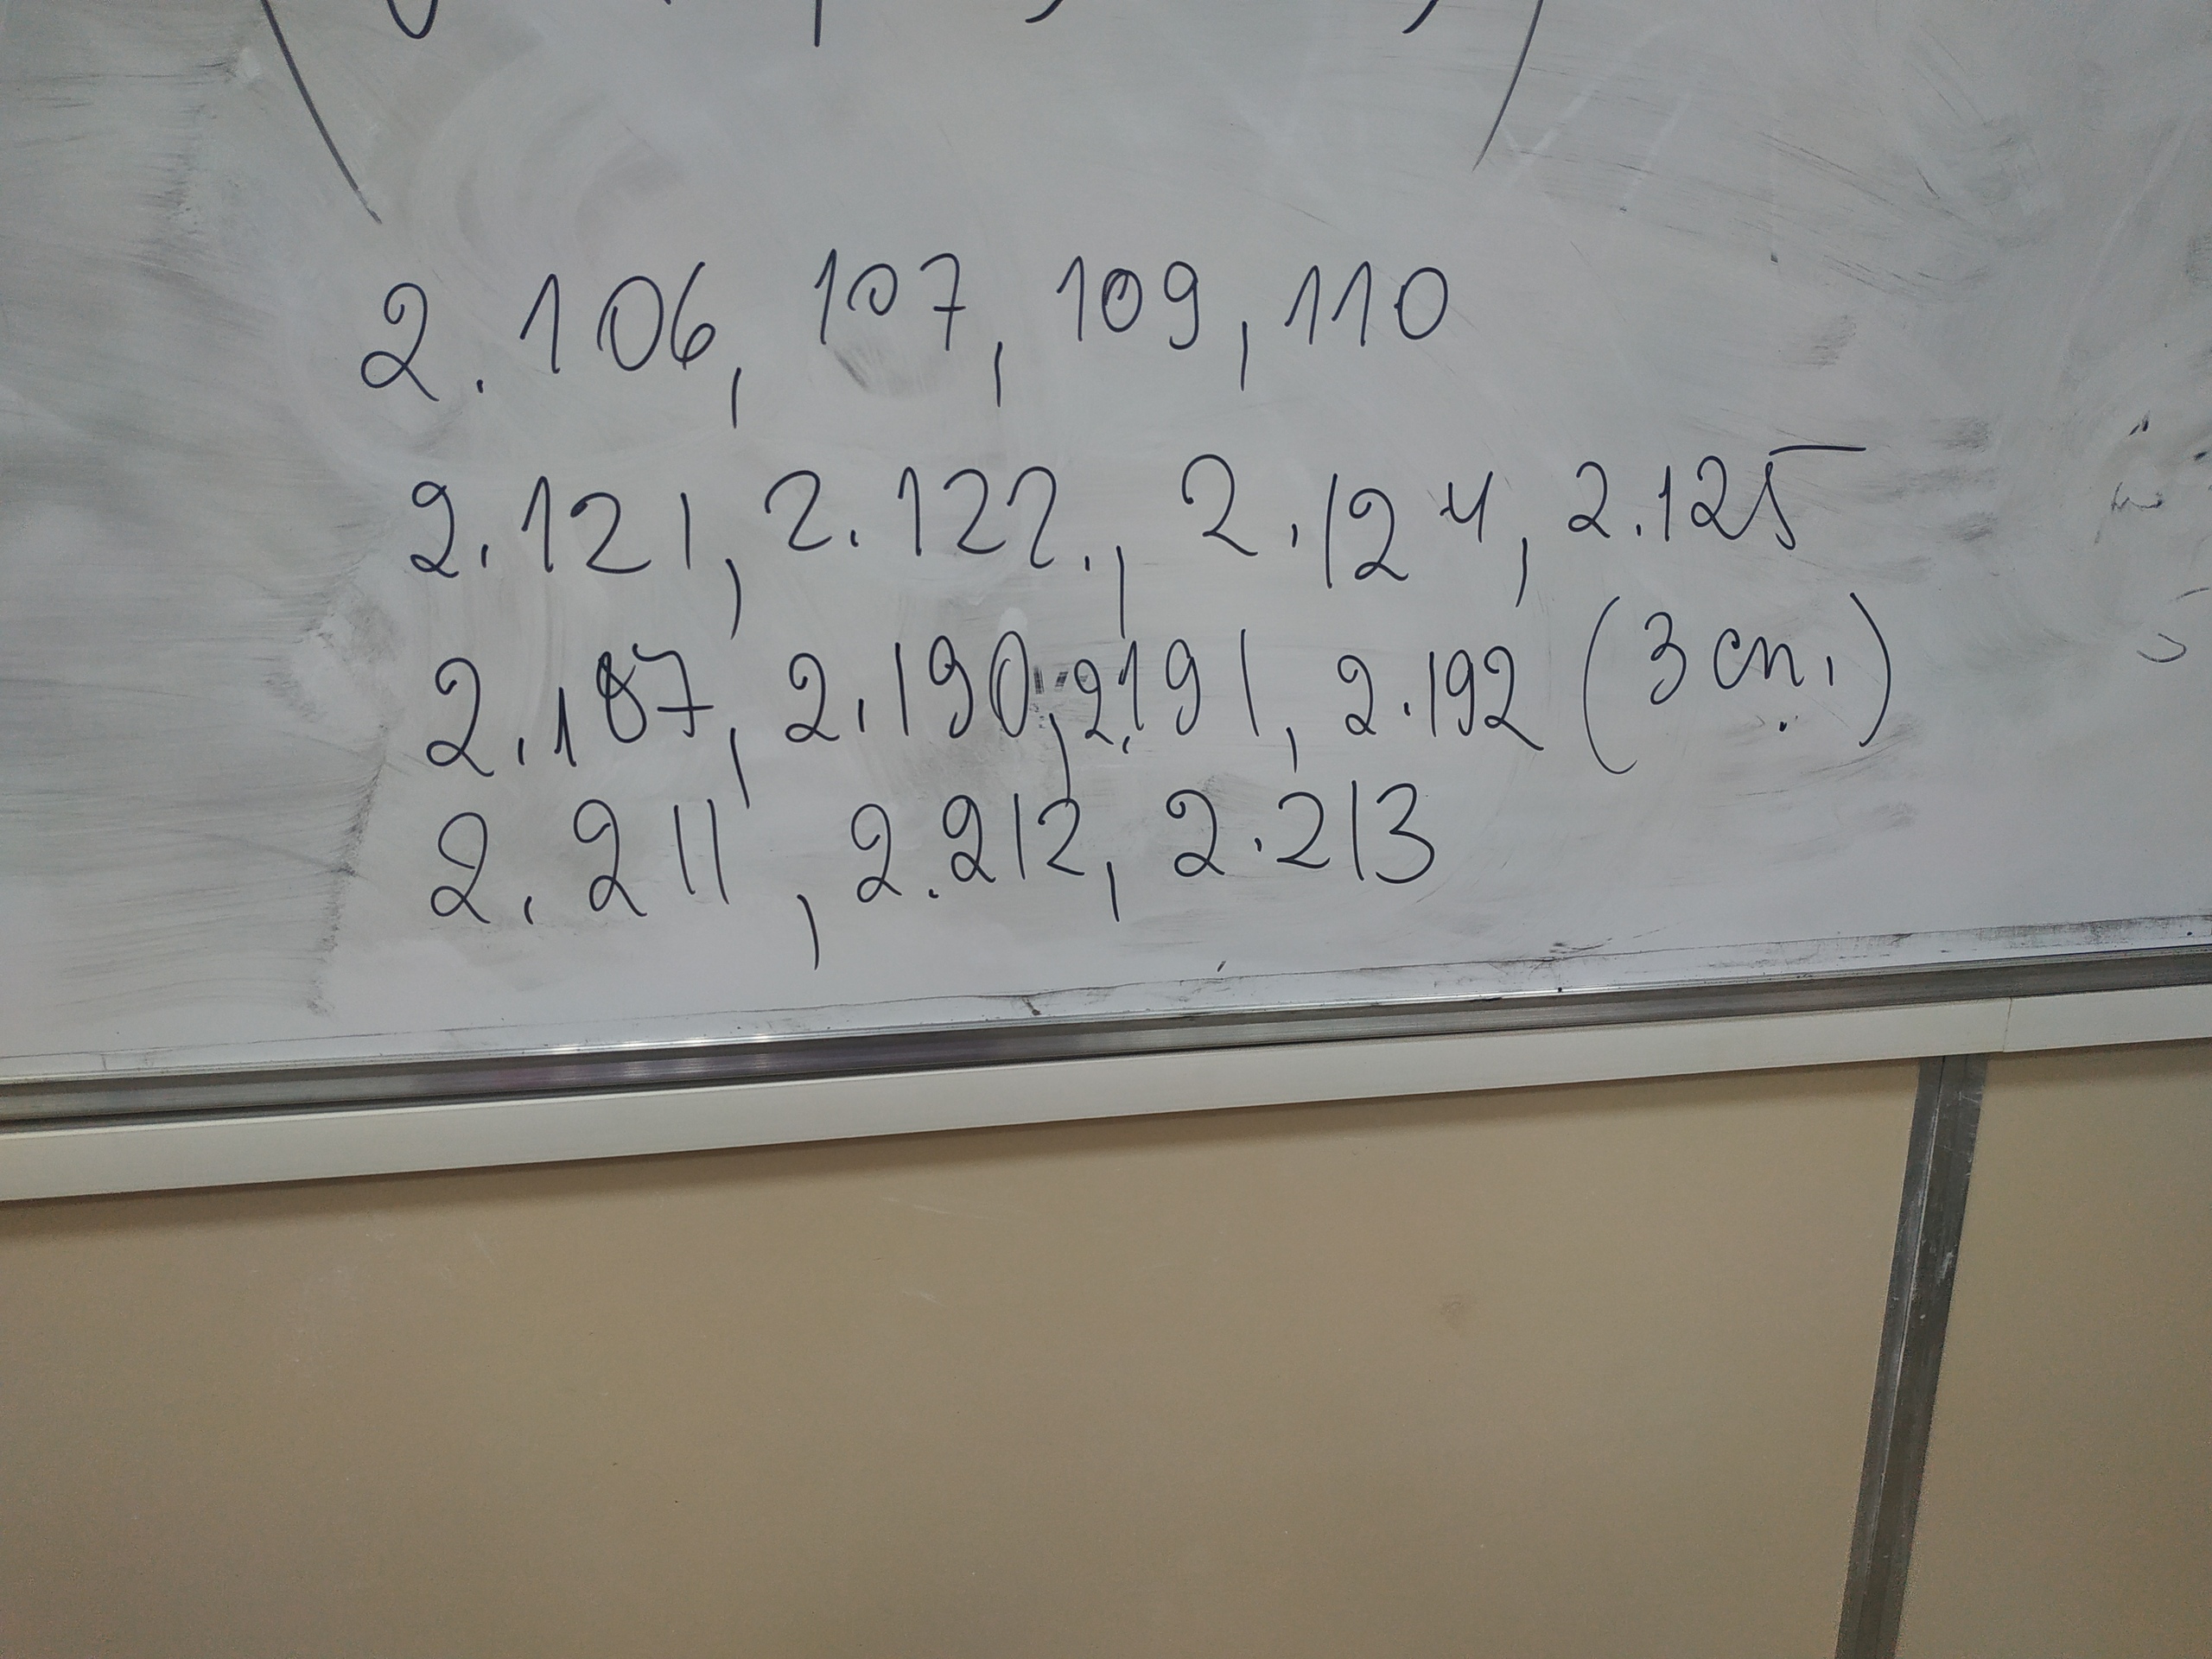 2.106, 107, 109, 110
2.121, 2.122., 2.124, 2.125
2.187, 2.190, 2.191, 2.192 (3 сп.)
2.211, 2.212, 2.213